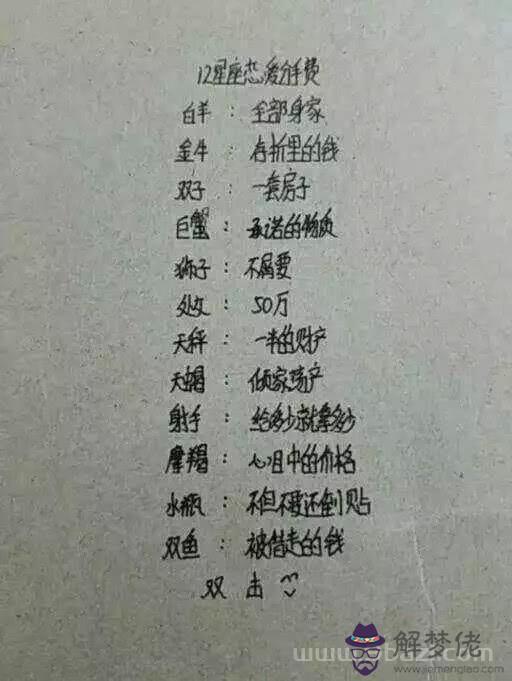 12星座恋爱分手费
白羊：全部身家
金牛：存折里的钱
双子：一套房子
巨蟹：承诺的物质
狮子：不屑要
处女：50万
天秤：一半的财产
天蝎：倾家荡产
射手：给多少就拿多少
摩羯：心目中的价格
水瓶：不但不要还倒贴
双鱼：被借走的钱
双击
解梦佬
www.jiemenglao.com